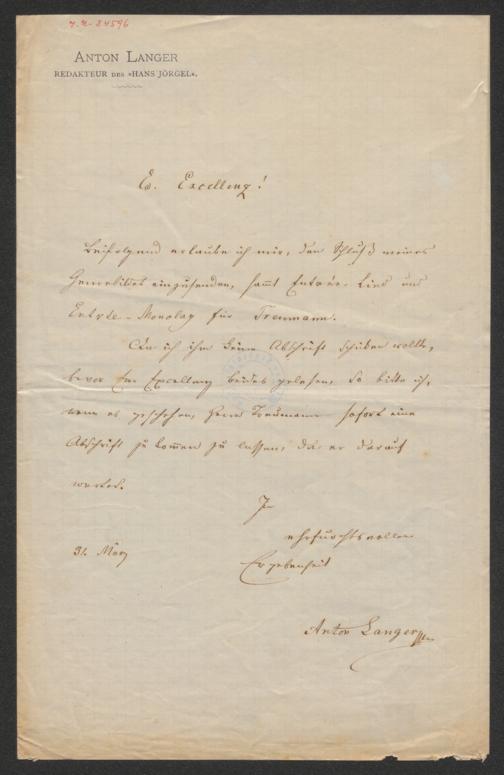 I.N-24596
ANTON LANGER
REDAKTEUR DES »HANS JÖRGEL«.
Ew. Excellenz!
Beifolgend erlaube ich mir, den Schluß meines
Genrebildes einzusenden, sammt Entrée-Lied und
Entrée-Monolog für Treumann.
Da ich ihm keine Abschrift schicken wollte,
bevor Eur Excellenz beides gelesen, so bitte ich,
wenn es geschehen, Herrn Treumann sofort eine
Abschrift zu kommen zu lassen, da er darauf
wartet.
In
ehrfurchtsvoller
Ergebenheit
31. März
Anton Langer